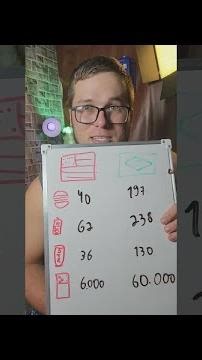 40 197
62 238
36 130
6.000 60.000